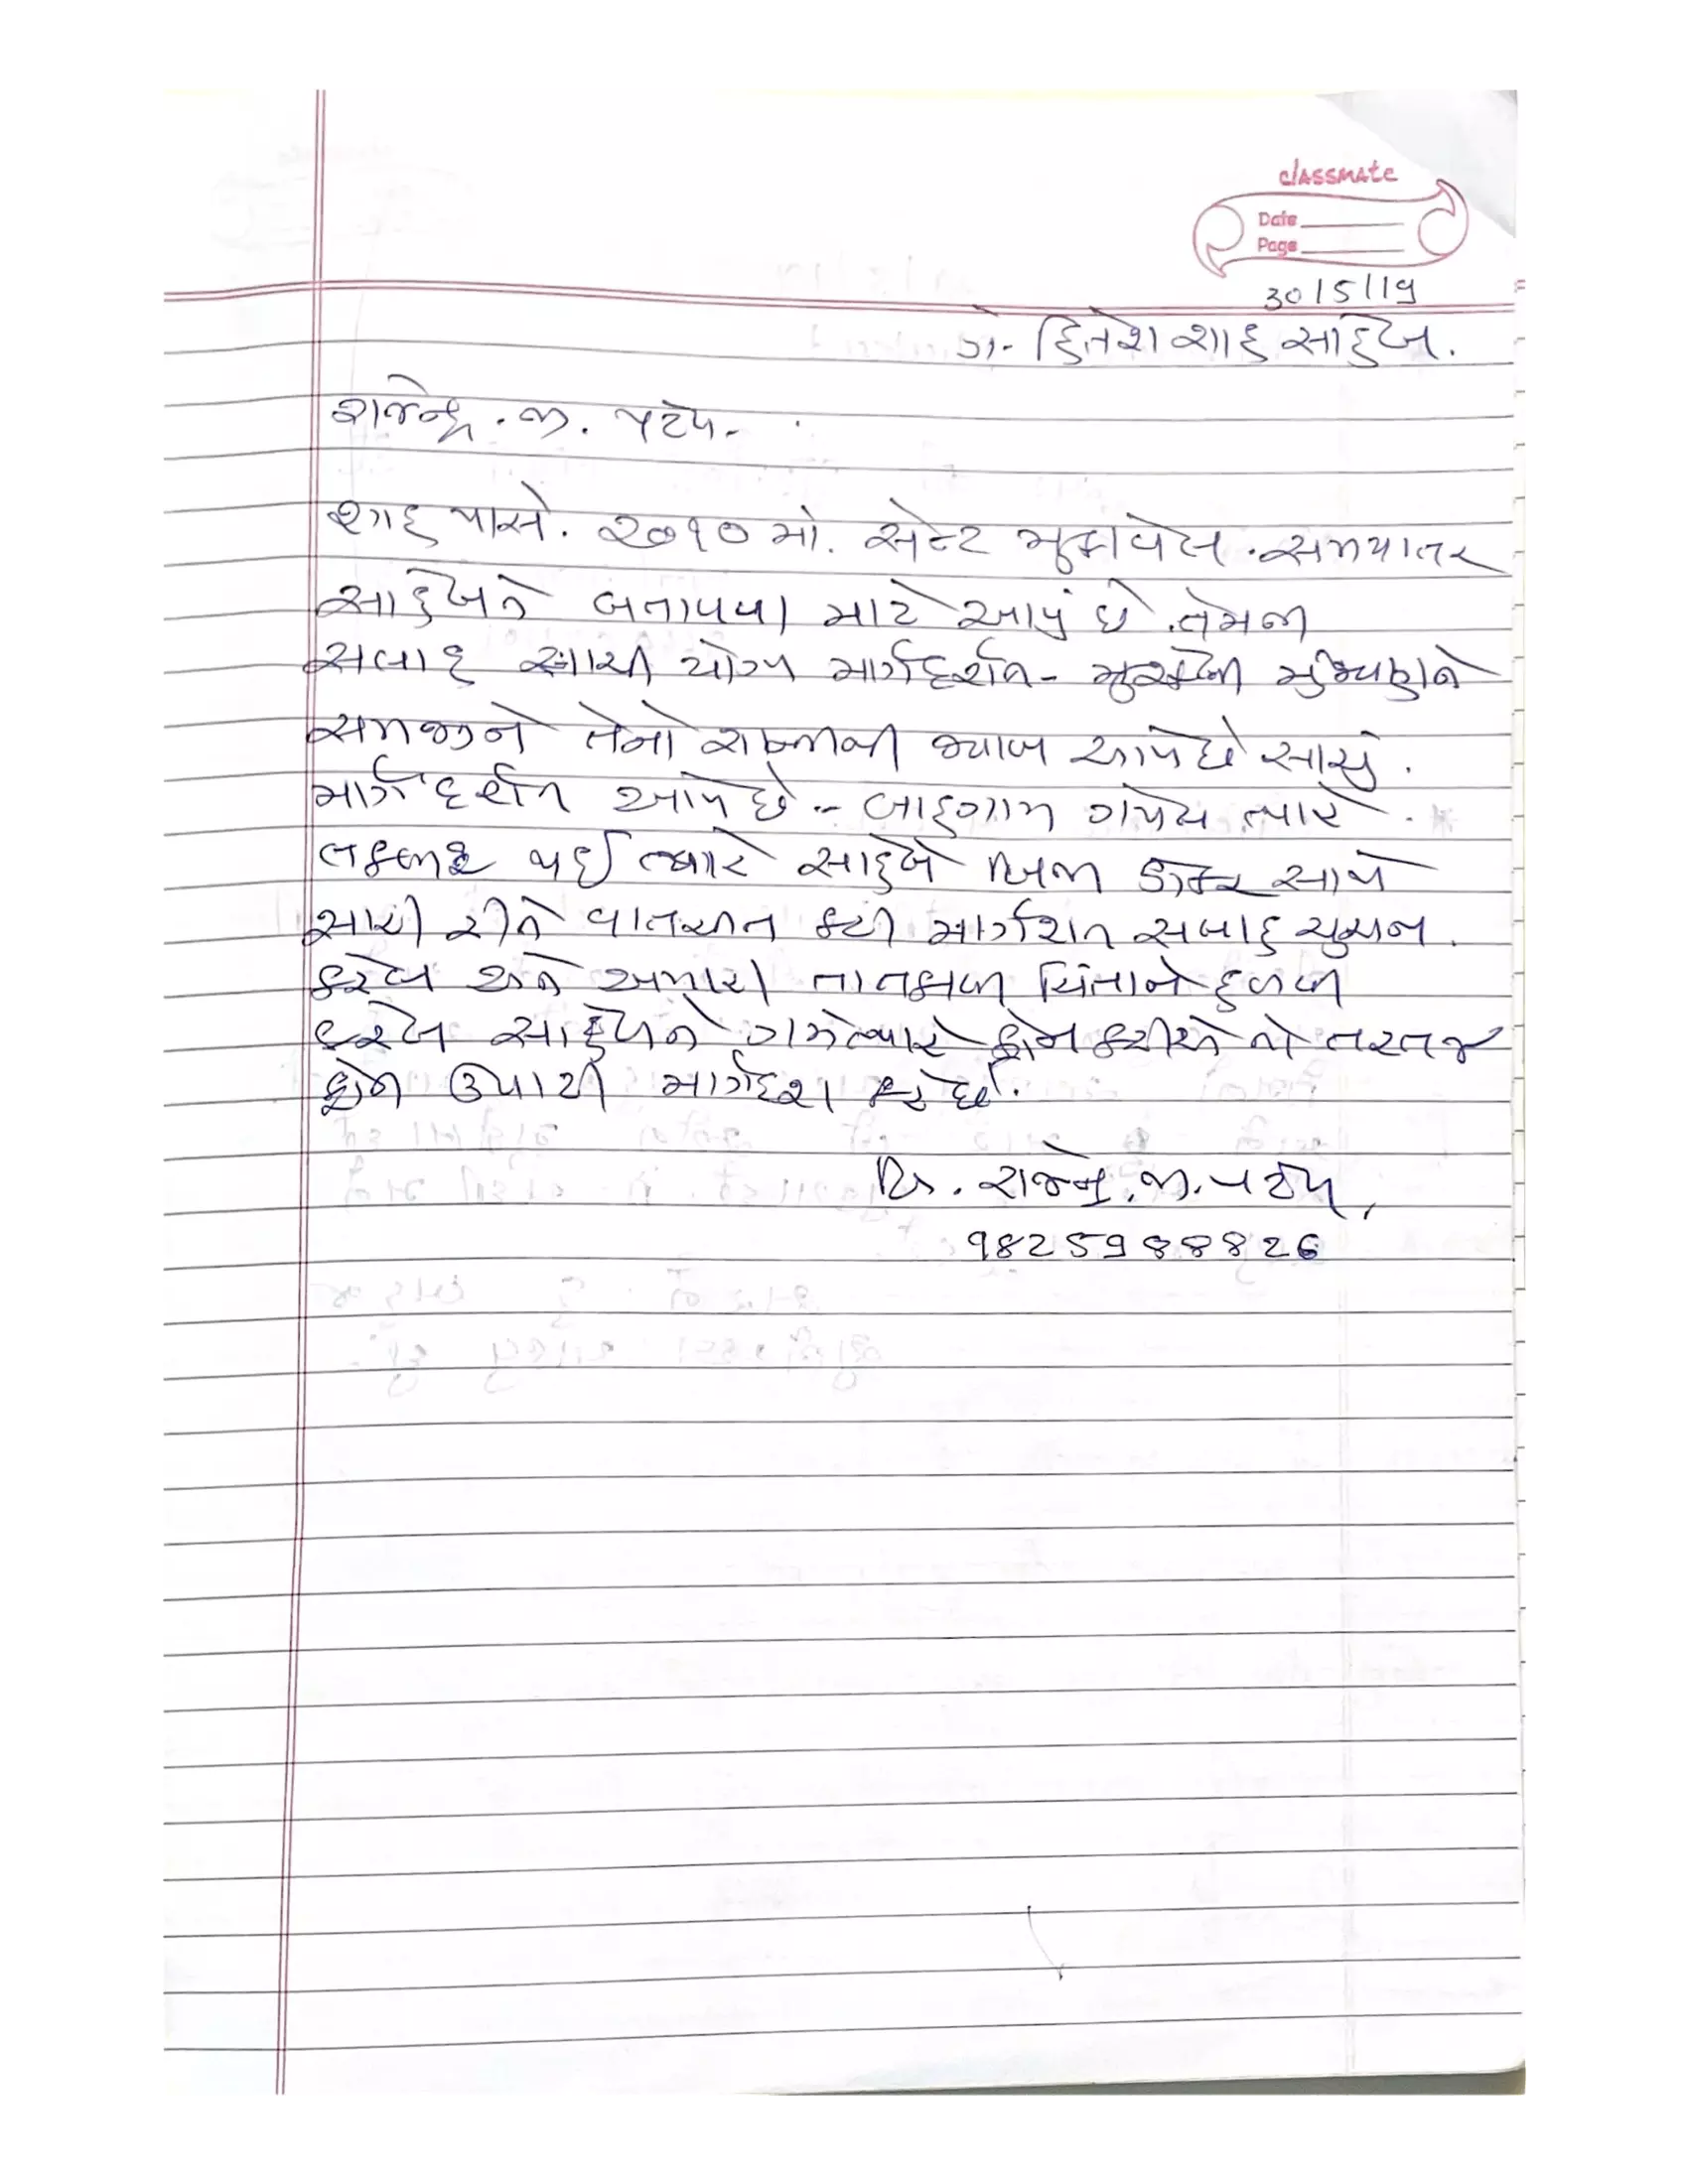 classmate
Date
Page
30/5/19
ડૉ. હિતેશ શાહ સાહેબ.
રાજેન્દ્ર. જી. પટેલ.
શાહ પાસે. ૨૦૧૦ માં. સેન્ટ મુકાવેલ. સમયાતર
સાહેબને બતાવવા માટે આવું છે. તેમજ
સલાહ સારી યોગ્ય માર્ગદર્શન - મુશ્કેલી
સમજીને તેનો જવાબ આપે છે સારું.
માર્ગદર્શન આપે છે - બાહરગામ ત્યારે.
તકલીફ થઈ ત્યારે સાહેબે બિજા ડોક્ટર સાથે
સારી રીતે વાતચીત કરી માર્ગદર્શન સલાહ સુચન.
કરેલ અને અમારા ચિંતાને હળવી
કરેલ સાહેબને ગમેત્યારે ફોન કરીએ તો તરતજ
ફોન ઉપાડી કરે છે.
લિ. રાજેન્દ્ર. જી. પટેલ,
9825988826